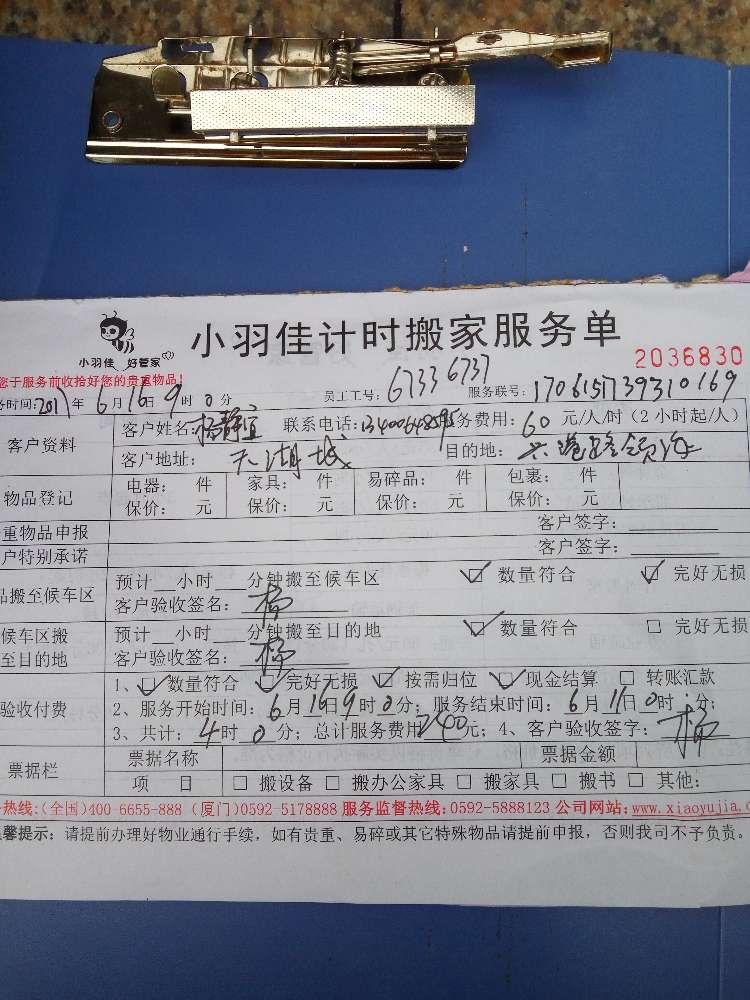 小羽佳 好管家
小羽佳计时搬家服务单
2036830
您于服务前收拾好您的贵重物品!
务时间:2017年6月16日9时0分 员工工号:6733 6737 服务联号:1706157739310169
客户资料
客户姓名:杨静宜 联系电话: 务费用:60元/人/时(2小时起/人)
客户地址:天湖城 目的地:
物品登记
电器: 件 家具: 件 易碎品: 件 包裹: 件
保价: 元 保价: 元 保价: 元 保价: 元
重物品申报 客户签字:
户特别承诺 客户签字:
品搬至候车区
预计 小时 分钟搬至候车区 数量符合 完好无损
客户验收签名:杨
候车区搬至目的地
预计 小时 分钟搬至目的地 数量符合 完好无损
客户验收签名:杨
验收付费
1、数量符合 完好无损 按需归位 现金结算 转账汇款
2、服务开始时间:6月16日9时0分;服务结束时间:6月 日 时 分;
3、共计:4时0分;总计服务费用 元;4、客户验收签字:杨
票据栏
票据名称 票据金额
项 目 搬设备 搬办公家具 搬家具 搬书 其他:
热线:(全国)400-6655-888 (厦门)0592-5178888 服务监督热线:0592-5888123 公司网站:www.xiaoyujia.c
温馨提示:请提前办理好物业通行手续,如有贵重、易碎或其它特殊物品请提前申报,否则我司不予负责。